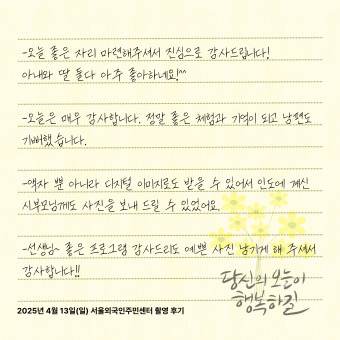 -오늘 좋은 자리 마련해주셔서 진심으로 감사드립니다!
아내와 딸 둘다 아주 좋아하네요!^^
-오늘은 매우 감사합니다. 정말 좋은 체험과 기억이 되고 남편도
기뻐했습니다.
-액자 뿐 아니라 디지털 이미지로도 받을 수 있어서 인도에 계신
시부모님께도 사진을 보내 드릴 수 있었어요.
-선생님~ 좋은 프로그램 감사드리도 예쁜 사진 남기게 해 주셔서
감사합니다!!
당신의 오늘이
행복하길
2025년 4월 13일(일) 서울외국인주민센터 촬영 후기